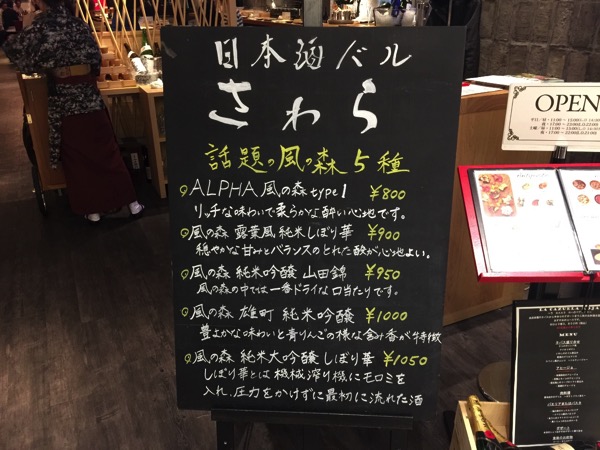 日本酒バル
さわら
話題の風の森5種
ALPHA 風の森 type1 ¥800
リッチな味わいで柔らかな酔い心地です。
風の森 露葉風 純米しぼり華 ¥900
穏やかな甘みとバランスのとれた酸が心地よい。
風の森 純米吟醸 山田錦 ¥950
風の森の中では一番ドライな口当たりです。
風の森 雄町 純米吟醸 ¥1000
豊かな味わいと青りんごの様な含み香が特徴
風の森 純米大吟醸 しぼり華 ¥1050
しぼり華とは機械搾り機にモロミを
入れ、圧力をかけずに最初に流れた酒
OPEN
MENU